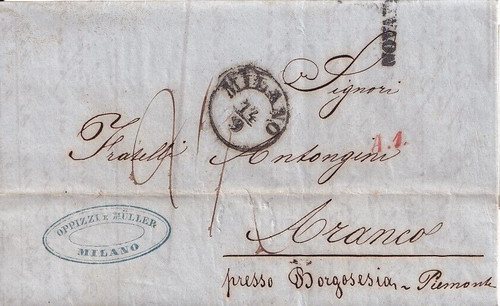 NOVARA
Signori
MILANO
14
9
Fratelli Antongini
A.1.
OPPIZZI E MÜLLER
MILANO
Aranco
presso Borgosesia - Piemonte